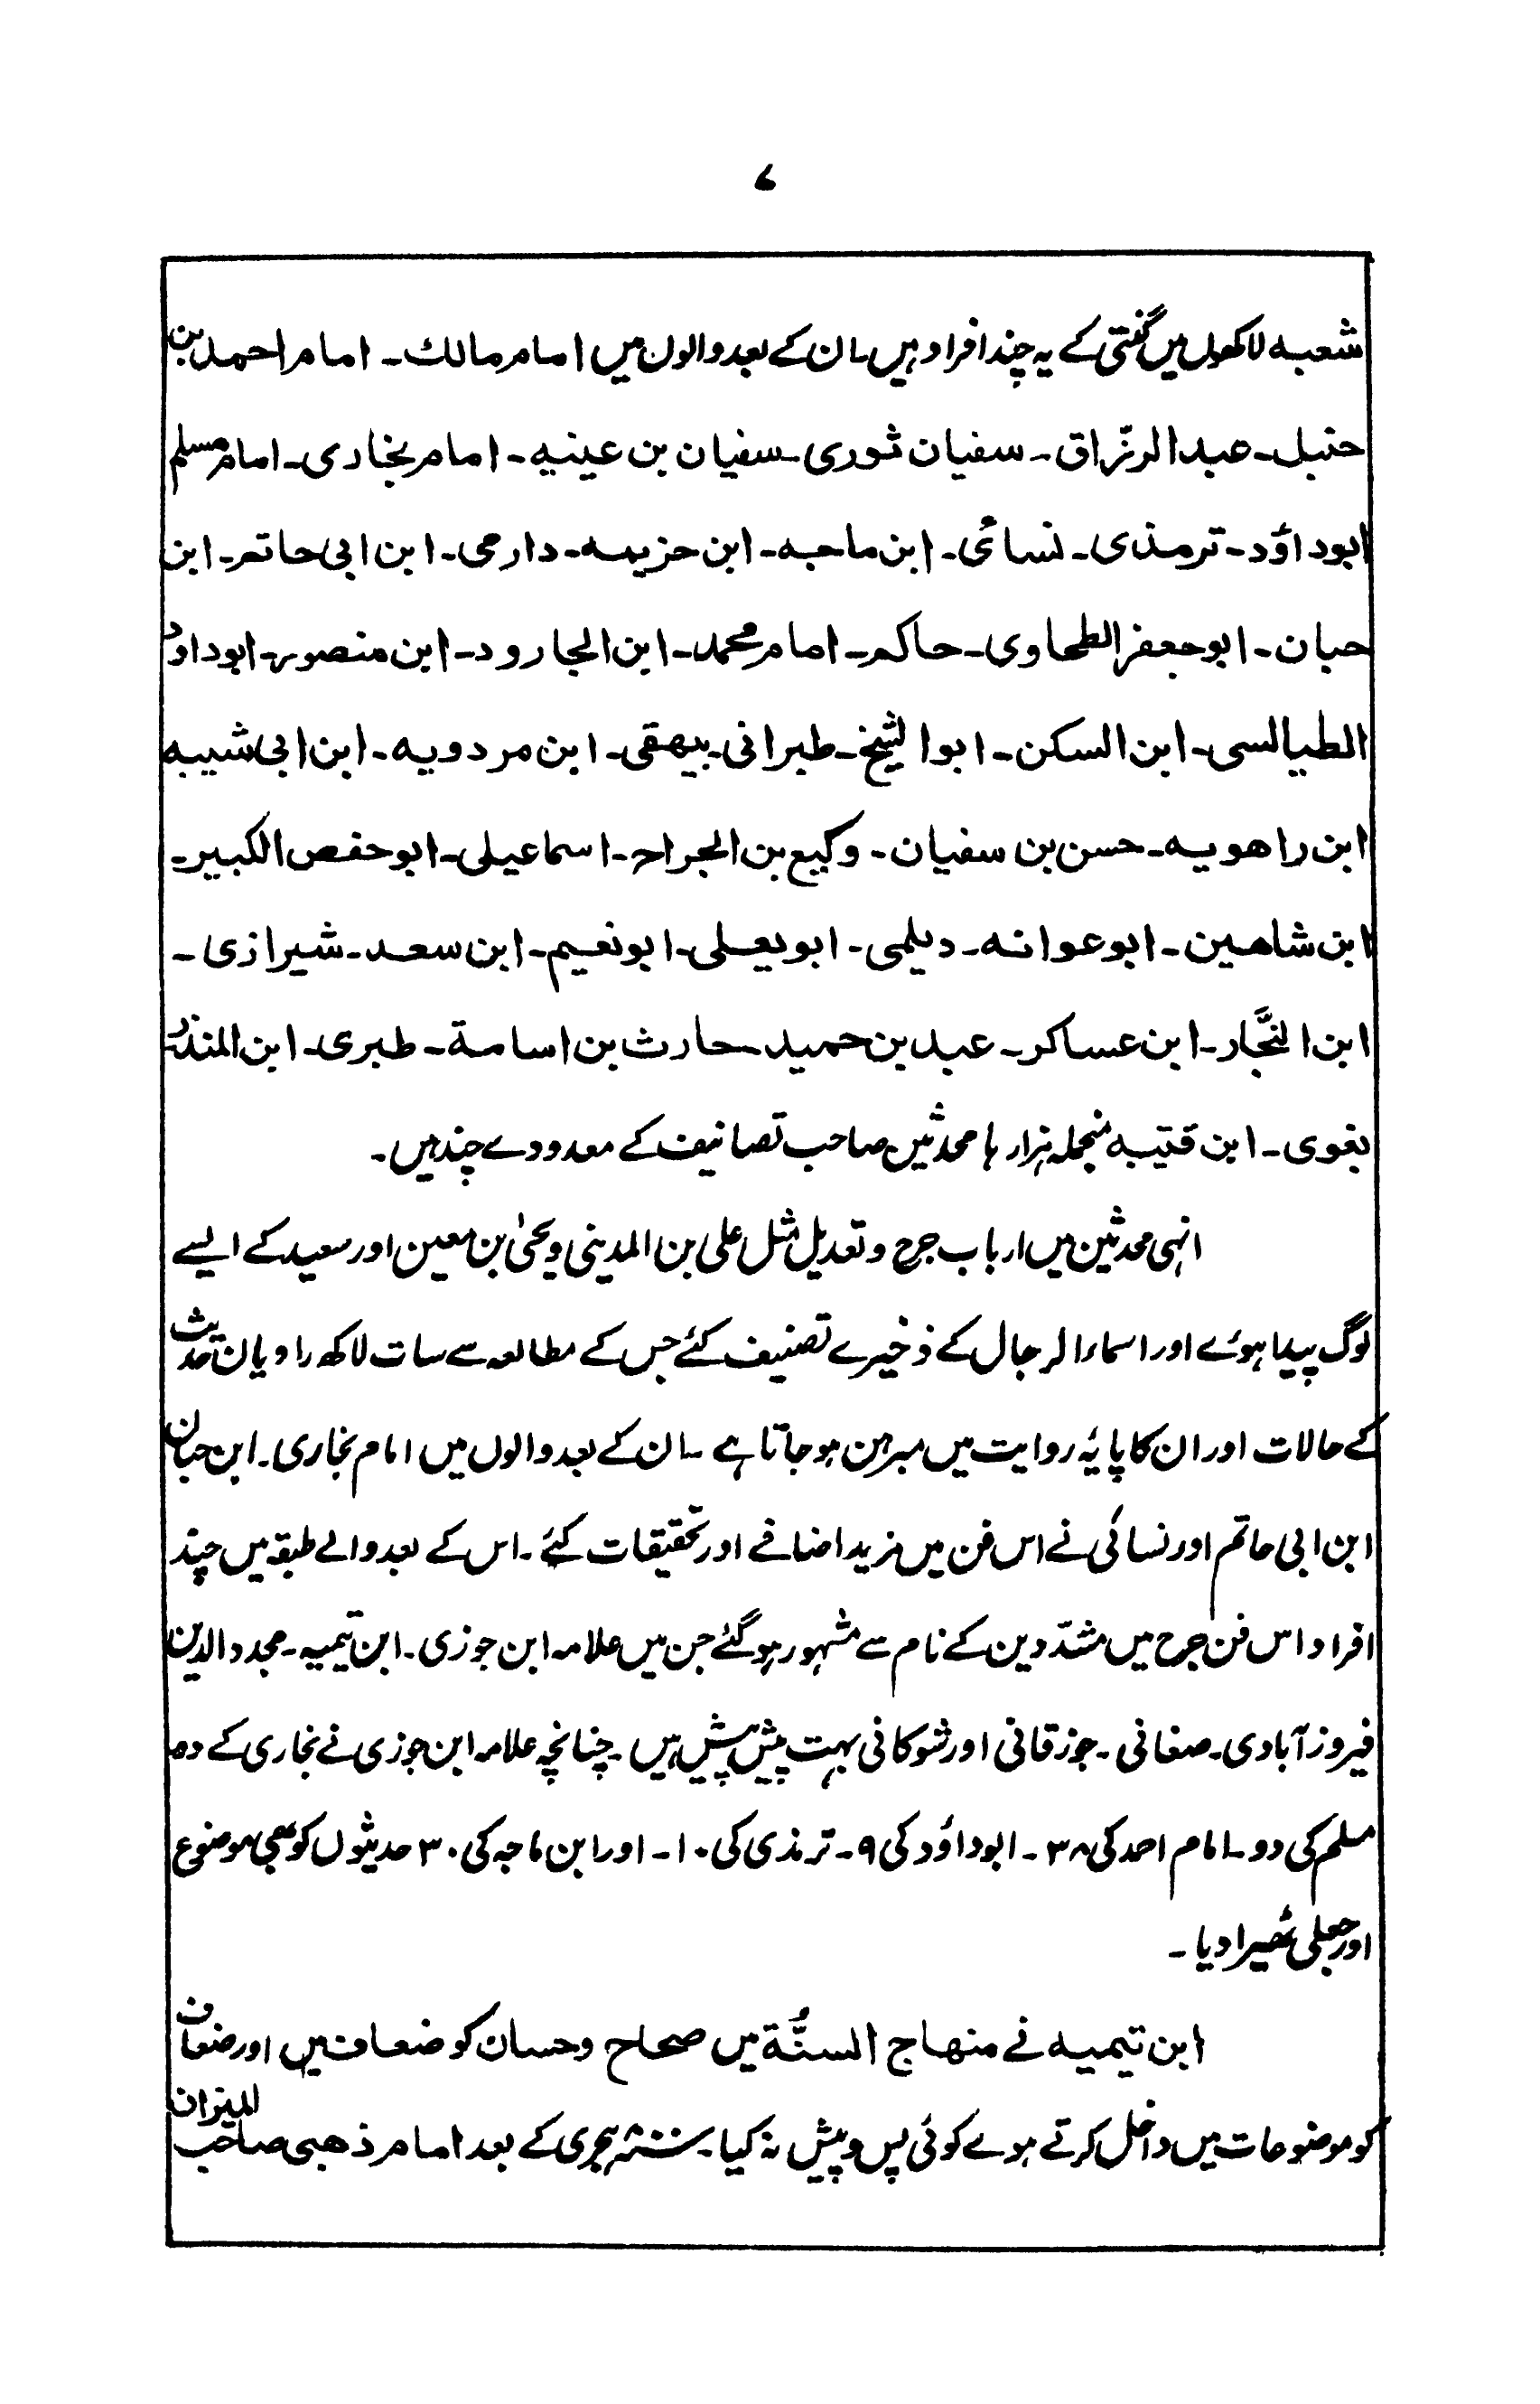 ۷
شعبہ لاکھوں میں گنتی کے یہ چند افراد ہیں۔ ان کے بعد والوں میں امام مالک۔ امام احمد بن
حنبل۔ عبدالرزّاق۔ سفیان ثوری۔ سفیان بن عینیہ۔ امام بخاری۔ امام مسلم
ابوداؤد۔ ترمذی۔ نسائی۔ ابن ماجہ۔ ابن خزیمہ۔ دارمی۔ ابن ابی حاتم۔ ابن
حبان۔ ابوجعفر الطحاوی۔ حاکم۔ امام محمد۔ ابن الجارود۔ ابن منصور۔ ابوداود
الطیالسی۔ ابن السکن۔ ابوالشیخ۔ طبرانی۔ بیھقی۔ ابن مردویہ۔ ابن ابی شیبہ
ابن راھویہ۔ حسن بن سفیان۔ وکیع بن الجراح۔ اسماعیلی۔ ابوحفص الکبیر۔
ابن شاھین۔ ابوعوانہ۔ دیلمی۔ ابویعلی۔ ابونعیم۔ ابن سعد۔ شیرازی۔
ابن النجَّار۔ ابن عساکر۔ عبد بن حمید۔ حارث بن اسامة۔ طبری۔ ابن المنذر
بغوی۔ ابن قتیبہ منجملہ ہزارہا محدثین صاحب تصانیف کے معدودے چند ہیں۔
انہی محدثین میں ارباب جرح و تعدیل مثل علی بن المدینی و یحیٰ بن معین اور سعید کے ایسے
لوگ پیدا ہوئے اور اسماء الرجال کے ذخیرے تصنیف کئے جس کے مطالعہ سے سات لاکھ راویان حدیث
کے حالات اور ان کا پایۂ روایت میں مبرہن ہو جاتا ہے۔ ان کے بعد والوں میں امام بخاری۔ ابن حبان
ابن ابی حاتم اور نسائی نے اس فن میں مزید اضافے اور تحقیقات کیئے۔ اس کے بعد والے طبقہ میں چند
افراد اس فن جرح میں مشدّدین کے نام سے مشہور ہوگئے جن میں علامہ ابن جوزی۔ ابن تیمیہ۔ مجدد الدین
فیروز آبادی۔ صغانی۔ جوزقانی اور شوکانی بہت پیش پیش ہیں۔ چنانچہ علامہ ابن جوزی نے بخاری کے دہ
مسلم کی دو۔ امام احمد کی ۳۸۔ ابوداؤد کی ۹۔ ترمذی کی ۱۰۔ اور ابن ماجہ کی ۳۰ حدیثوں کو بھی موضوع
اور جعلی ٹھیرا دیا۔
ابن تیمیہ نے منھاج السنُّة میں صحاح وحسان کو ضعاف میں اور ضعاف
کو موضوعات میں داخل کرتے ہوے کوئی پس و پیش نہ کیا۔ ہجری کے بعد امام ذھبی صاحب المیزان